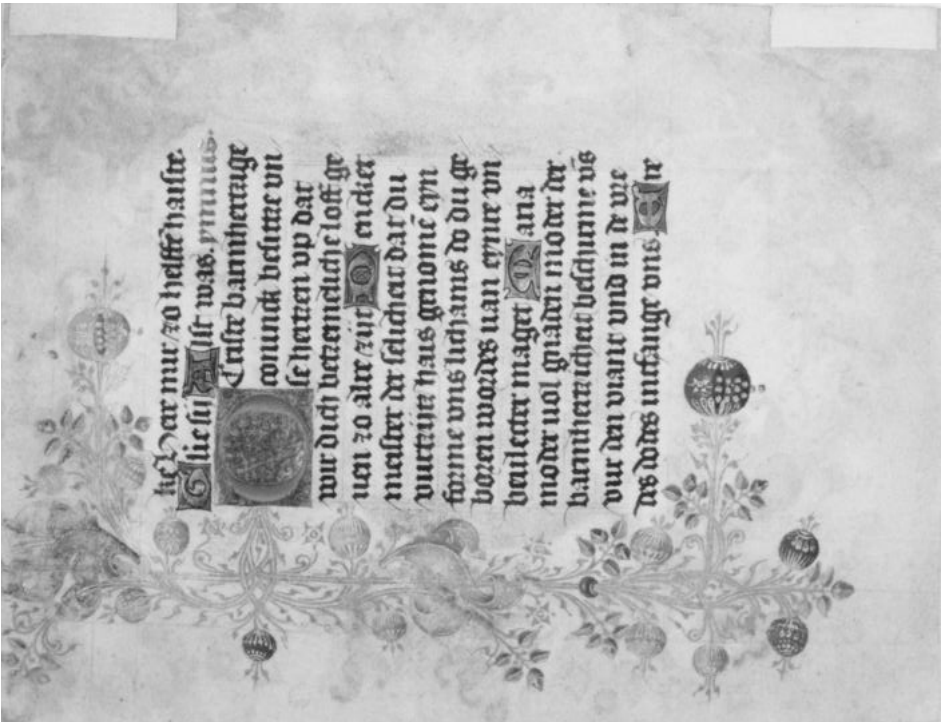 ke Der mir zo helffe haiste.
Glie sij Alst was. ymnus.
Criste barmhertzige
conunck besitze vn
se hertzen vp dat
wir dich betzemeliche loff ge
uen zo alre zijt Gencker
meister der selicheit dat du
vurtzijtz hais genomē eyn
forme vns lichams do du ge
boren wordes uan eynre vn
beuilecter maget Maria
moder uol gnaden moder der
barmhertzicheit beschirme vns
vur den viant vnd in de vre
des dodes intfange vns Ere